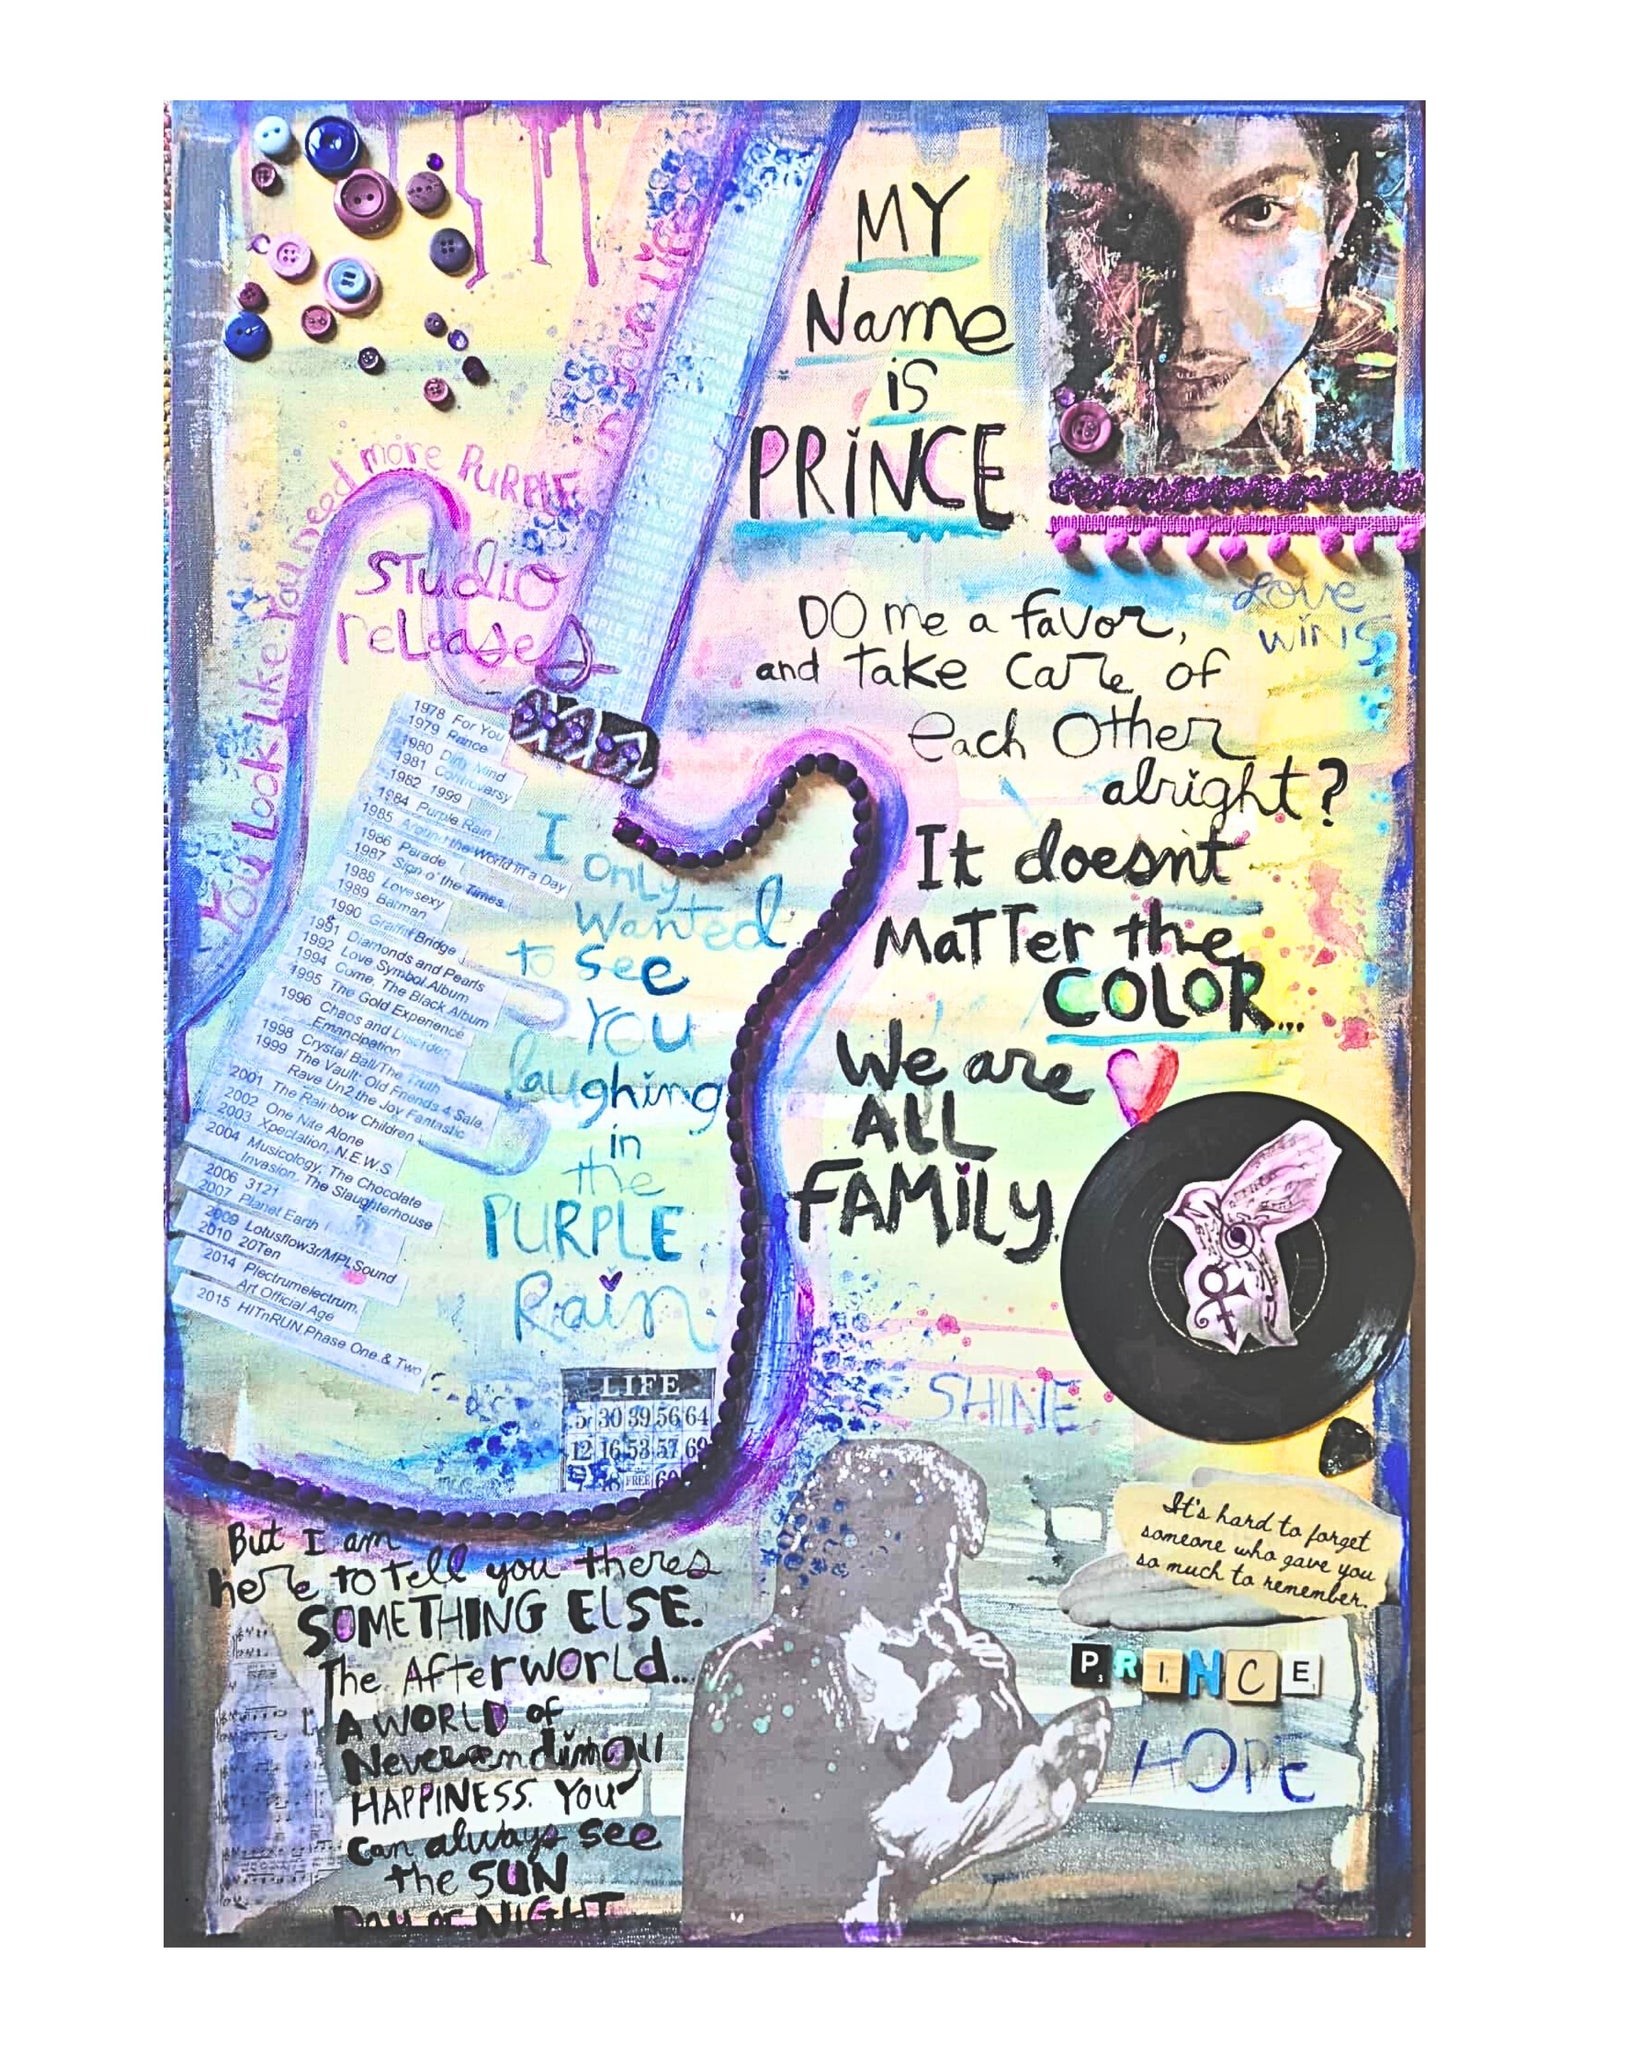 MY
Name
is
PRINCE
DO me a favor,
and take care of
each Other
alright?
It doesnt
MaTTer the
COLOR...
We are
ALL
FAMiLy.
Love
WiNS
You Look Like You Need more PURPLE in your Life
Studio
releases
1978 For You
1979 Rance
1980 Dirty Mind
1981 Controversy
1982 1999
1984 Purple Rain
1985 Around the World in a Day
1986 Parade
1987 Sign o' the Times
1988 Lovesexy
1989 Barman
1990 Graffiti Bridge
1991 Diamonds and Pearls
1992 Love Symbol Album
1994 Come, The Black Album
1995 The Gold Experience
1996 Chaos and Disorder,
Emancipation
1998 Crystal Ball/The Truth
1999 The Vault: Old Friends 4 Sale,
Rave Un2 the Joy Fantastic
2001 The Rainbow Children
2002 One Nite Alone
2003 Xpectation, N.E.W.S
2004 Musicology, The Chocolate
Invasion, The Slaughterhouse
2006 3121
2007 Planet Earth
2009 Lotusflow3r/MPLSound
2010 20Ten
2014 Plectrumelectrum,
Art Official Age
2015 HITnRUN Phase One & Two
I
Only
Wanted
to See
YOU
laughing
in
the
PURPLE
Rain
LIFE
5 30 39 56 64
12 16 53 57 69
FREE
SHINE
But I am
here to tell you theres
SOMETHING ELSE.
The Afterworld...
A WORLD of
Neverending
HAPPINESS. YOU
can always see
the SUN
DAY or NIGHT
It's hard to forget
someone who gave you
so much to remember.
PRINCE
HOPE